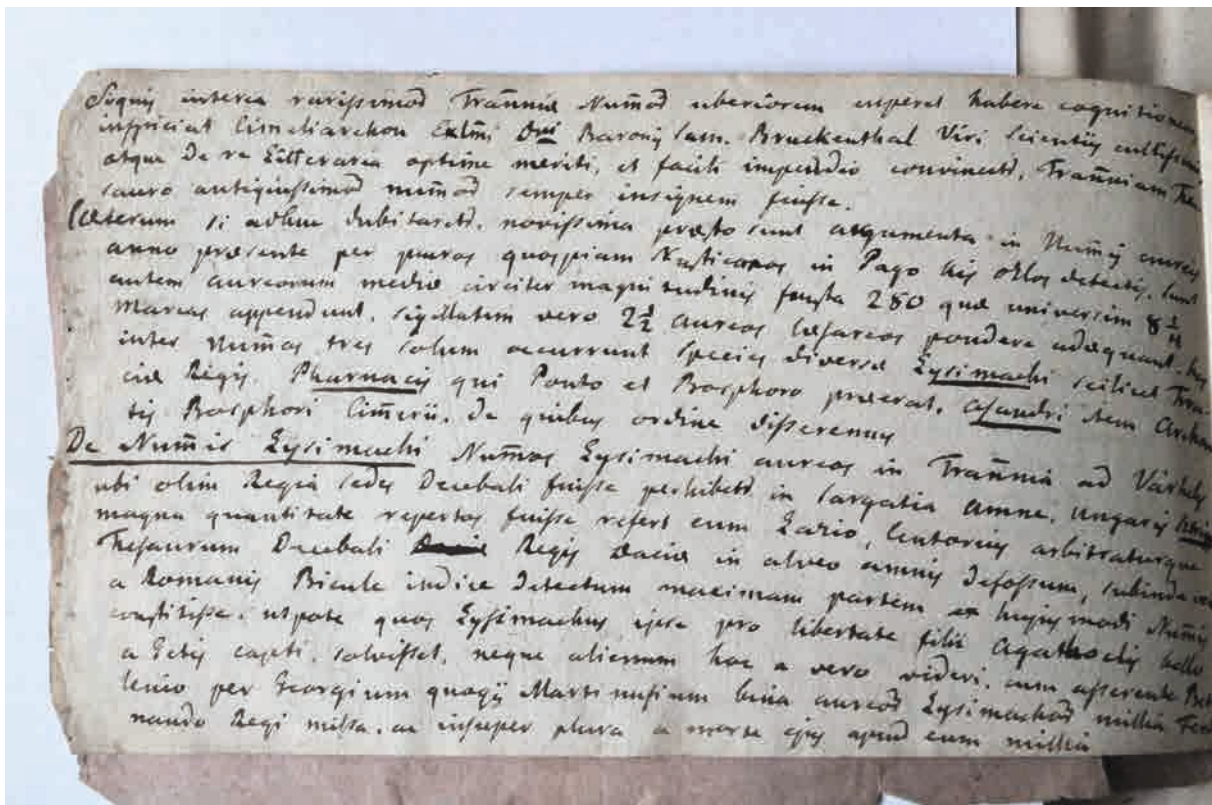 Siquis interea rarissimoꝝ Trañniæ Num̃oꝝ uberiorem cuperet habere cognitionem
inspiciat Cimeliarchon Exlm̃i Dni Baronis Sam. Bruckenthal Viri scientiis cultissimi
atque de re Litteraria optime meriti, et facili impendio convincetꝝ, Trañniam The-
sauro antiquissimoꝝ num̃oꝝ semper insignem fuisse.
Cæterum si adhuc dubitaretꝝ, novissima præsto sunt argumenta in Num̃is aureis
anno præsente per pueros quospiam Rusticanos in Pago detectis. sunt
autem aureorum mediæ circiter magnitudinis frusta 280 quæ universim 8 1/4
Marcas appendunt, sigillatim vero 2 1/2 aureos Cæsareos pondere adæquant. hos
inter Num̃os tres solum occurrunt species diversæ Lysimachi scilicet Thra-
ciæ Regis. Pharnacis qui Ponto et Bosphoro præerat, Asandri item Archon-
tis Bosphori Cim̃erii. de quibus ordine disseremus
De Num̃is Lysimachi Num̃os Lysimachi aureos in Trañnia ad Várhely
ubi olim Regia sedes Decebali fuisse perhibetꝝ in Sargatia amne, Ungaris
magna quantitate repertos fuisse refert cum Lazio, Centorius arbitraturque
Thesaurum Decebali Regis Daciæ in alveo amnis defossum, subinde vero
a Romanis Bicule indice detectum maximam partem ex hujusmodi Num̃is
constitisse. utpote quos Lysimachus ipse pro libertate filii Agathoclis bello
a Getis capti, solvisset, neque alienum hoc a vero videri, cum asserente Bet-
lenio per Georgium quoque Martinusium bina aureoꝝ Lysimachoꝝ millia Ferdi-
nando Regi missa, ac insuper plura a morte ejus apud eum millia